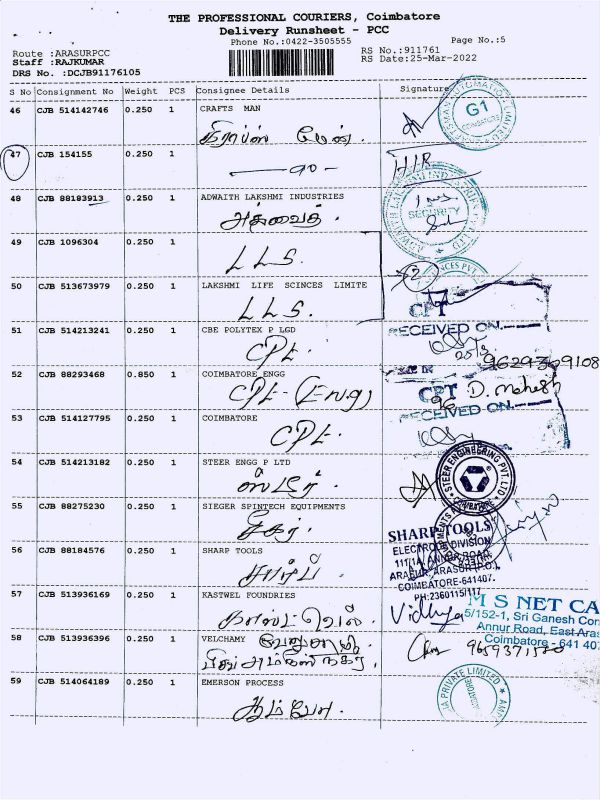 THE PROFESSIONAL COURIERS, Coimbatore
Delivery Runsheet - PCC
Phone No.:0422-3505555 Page No.:5
Route :ARASURPCC RS No.:911761
Staff :RAJKUMAR RS Date:25-Mar-2022
DRS No. :DCJB91176105
S No Consignment No Weight PCS Consignee Details Signature
46 CJB 514142746 0.250 1 CRAFTS MAN
கிராப்ஸ் மேன்.
G1
COIMBATORE
47 CJB 154155 0.250 1
H/R
48 CJB 88183913 0.250 1 ADWAITH LAKSHMI INDUSTRIES
அத்வைத்.
SECURITY
49 CJB 1096304 0.250 1
L L S.
2
50 CJB 513673979 0.250 1 LAKSHMI LIFE SCINCES LIMITE
L L S.
CPT
RECEIVED ON.
51 CJB 514213241 0.250 1 CBE POLYTEX P LGD
CPL.
9629309108
52 CJB 88293468 0.850 1 COIMBATORE ENGG
CPL - (Eng)
CPT D. Mahesh
RECEIVED ON.
53 CJB 514127795 0.250 1 COIMBATORE
CPL.
54 CJB 514213182 0.250 1 STEER ENGG P LTD
ஸ்டீர்.
STEER ENGINEERING PVT. LTD
COIMBATORE
55 CJB 88275230 0.250 1 SIEGER SPINTECH EQUIPMENTS
சீகர்.
56 CJB 88184576 0.250 1 SHARP TOOLS
சார்ப்.
SHARP TOOLS
ELECTRODE DIVISION
111/1A, ANNUR ROAD,
ARASUR, ARASUR (P.O.),
COIMBATORE-641407.
PH:2360115/117
57 CJB 513936169 0.250 1 KASTWEL FOUNDRIES
காஸ்ட் வெல்.
Vidhya
M S NET CA
5/152-1, Sri Ganesh Com
Annur Road, East Aras
Coimbatore - 641 407
58 CJB 513936396 0.250 1 VELCHAMY வேலுசாமி,
நகர்.
59 CJB 514064189 0.250 1 EMERSON PROCESS
PRIVATE LIMITED